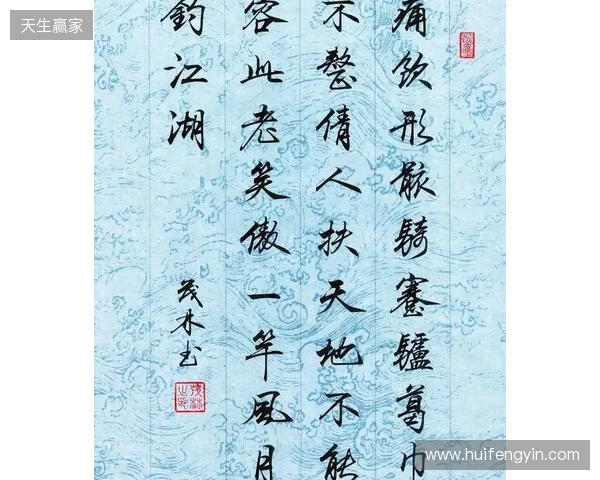 天生赢家
痛飲形骸騎蹇驢葛巾
不整倩人扶天地不能
容此老笑傲一竿風月
釣江湖
茂林书
www.huifengyin.com